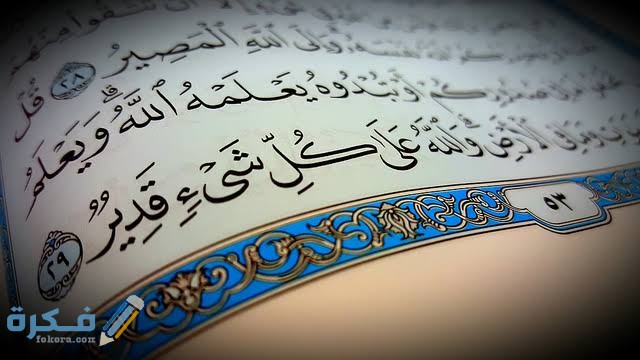 إِلَّآ أَن تَتَّقُوا۟ مِنْهُمْ
نَفْسَهُۥ وَإِلَى ٱللَّهِ ٱلْمَصِيرُ ٢٨ قُلْ
صُدُورِكُمْ أَوْ تُبْدُوهُ يَعْلَمْهُ ٱللَّهُ ۗ وَيَعْلَمُ
وَمَا فِى ٱلْأَرْضِ ۗ وَٱللَّهُ عَلَىٰ كُلِّ شَىْءٍ قَدِيرٌ ٢٩
٥٣
فكرة
fokora.com